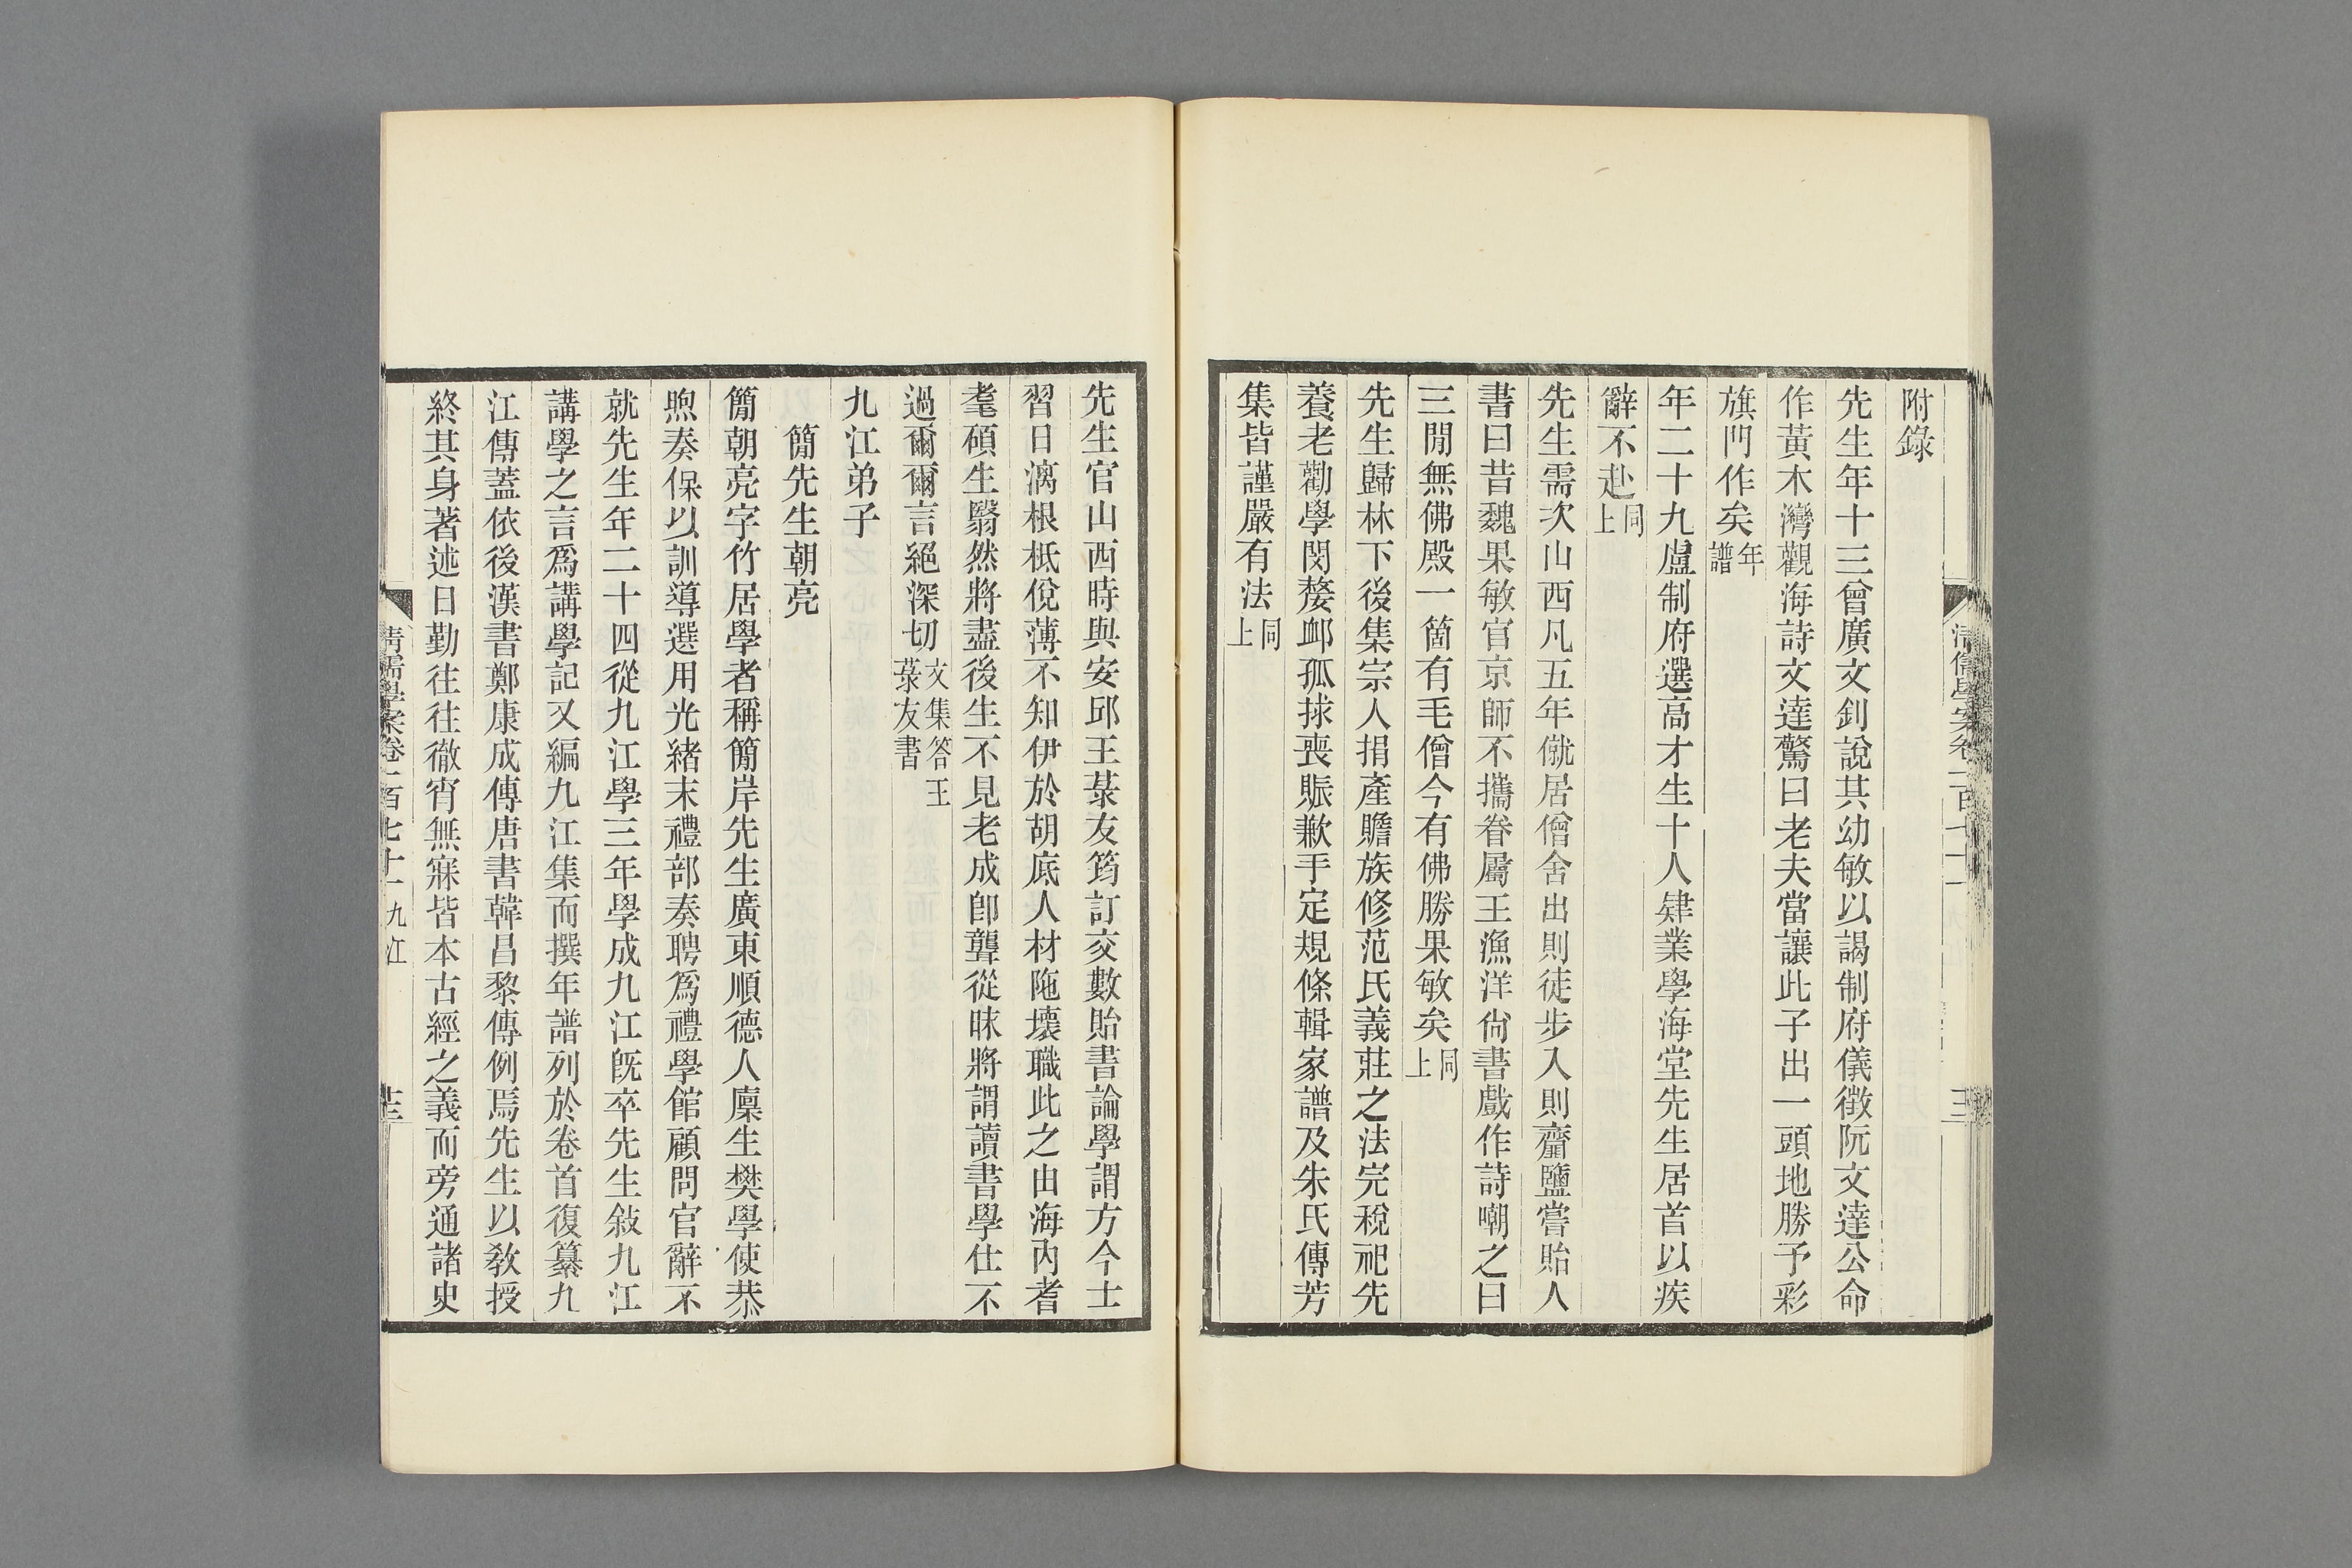 附錄
先生年十三曾廣文釗說其幼敏以謁制府儀徵阮文達公命
作黃木灣觀海詩文達驚曰老夫當讓此子出一頭地勝予彩
旗門作矣年譜
年二十九盧制府選高才生十人肄業學海堂先生居首以疾
辭不赴同上
先生需次山西凡五年僦居僧舍出則徒步入則齏鹽嘗貽人
書曰昔魏果敏官京師不攜眷屬王漁洋尙書戲作詩嘲之曰
三閒無佛殿一箇有毛僧今有佛勝果敏矣同上
先生歸林下後集宗人捐產贍族修范氏義莊之法完稅祀先
養老勸學閔嫠卹孤捄喪賑歉手定規條輯家譜及朱氏傳芳
集皆謹嚴有法同上
先生官山西時與安邱王菉友筠訂交數貽書論學謂方今士
習日漓根柢侻薄不知伊於胡底人材陁壞職此之由海內耆
耄碩生翳然將盡後生不見老成卽聾從昧將謂讀書學仕不
過爾爾言絕深切文集答王菉友書
九江弟子
簡先生朝亮
簡朝亮字竹居學者稱簡岸先生廣東順德人廩生樊學使恭
煦奏保以訓導選用光緒末禮部奏聘爲禮學館顧問官辭不
就先生年二十四從九江學三年學成九江旣卒先生敍九江
講學之言爲講學記又編九江集而撰年譜列於卷首復纂九
江傳蓋依後漢書鄭康成傳唐書韓昌黎傳例焉先生以敎授
終其身著述日勤往往徹宵無寐皆本古經之義而旁通諸史
清儒學案卷一百七十一 九江